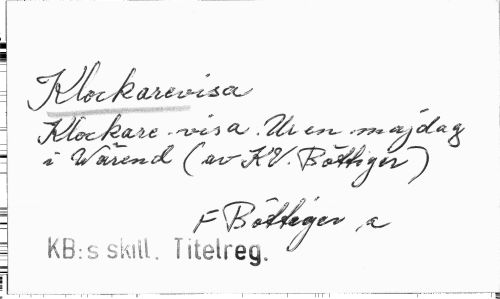 Klockarevisa
Klockare-visa. Ur en majdag
i Wärend (av K.V. Böttiger)
F Böttiger, a
KB:s skill. Titelreg.